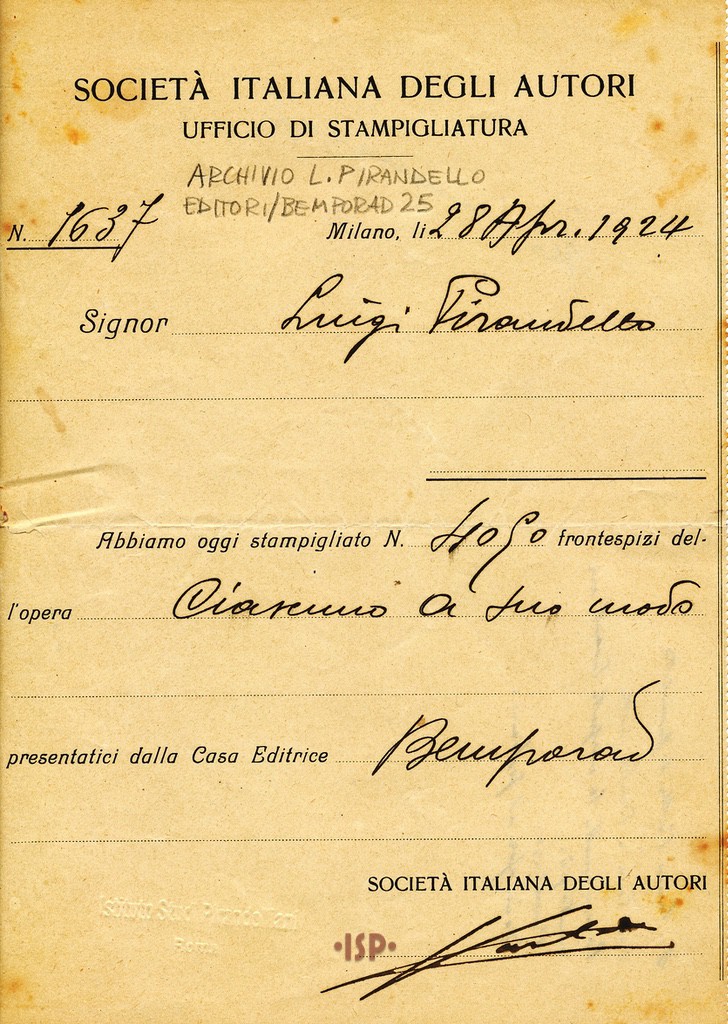 SOCIETÀ ITALIANA DEGLI AUTORI
UFFICIO DI STAMPIGLIATURA
ARCHIVIO L. PIRANDELLO
EDITORI/BEMPORAD 25
N. 1637 Milano, li 28 Apr. 1924
Signor Luigi Pirandello
Abbiamo oggi stampigliato N. 4050 frontespizi del-
l'opera Ciascuno a suo modo
presentatici dalla Casa Editrice Bemporad
SOCIETÀ ITALIANA DEGLI AUTORI
Istituto Studi Pirandelliani
Roma
·ISP·